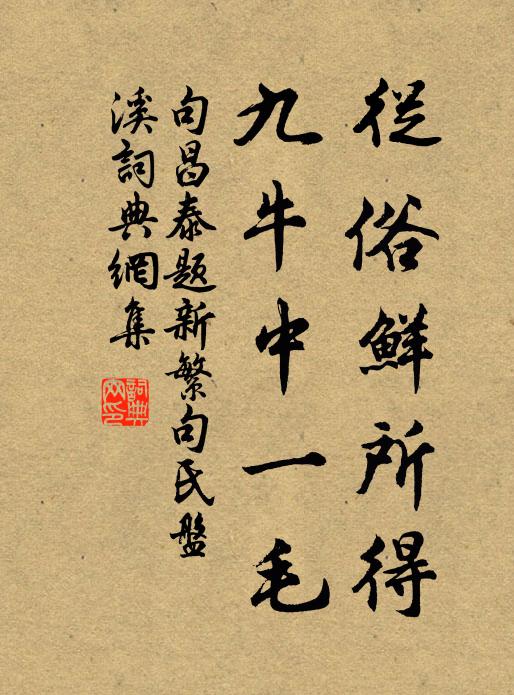 從俗鮮所得
九牛中一毛
句昌泰題新繁句氏盤
溪詞典網集
詞典
网印